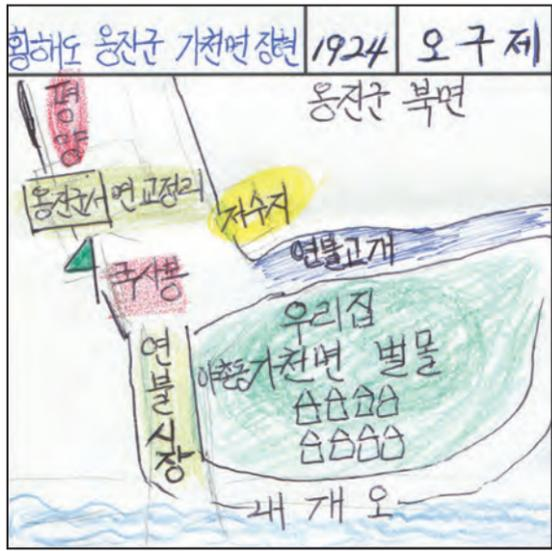 황해도 옹진군 가천면 장현 1924 오구제
옹진군 북면
평양
옹진군서면교정리
저수지
연불고개
국사봉
우리집
야촌동 가천면 벌물
연불시장
내개오